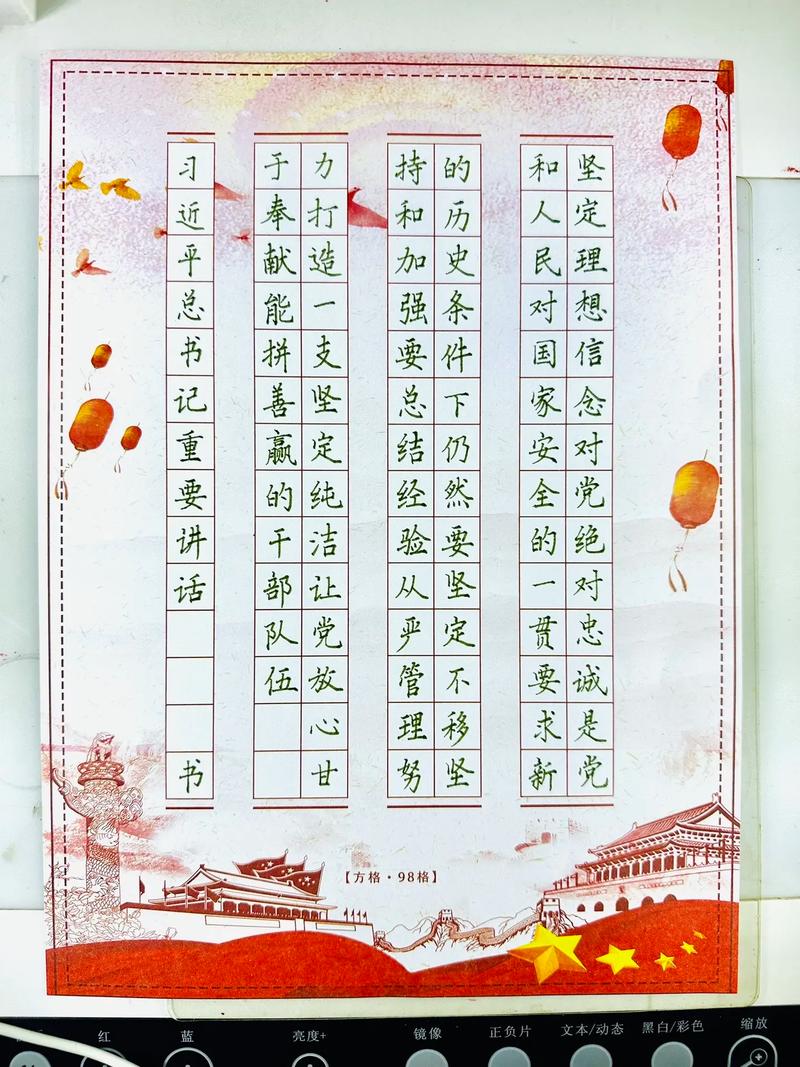 坚定理想信念对党绝对忠诚是党
和人民对国家安全的一贯要求新
的历史条件下仍然要坚定不移坚
持和加强要总结经验从严管理努
力打造一支坚定纯洁让党放心甘
于奉献能拼善赢的干部队伍
习近平总书记重要讲话 书
【方格·98格】
红 蓝 亮度+ 镜像 正负片 文本/动态 黑白/彩色 缩放